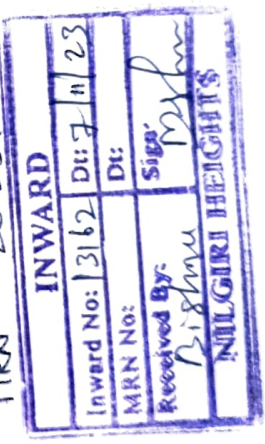 INWARD
Inward No: 13162 Dt: 7/11/23
MRN No: Dt:
Received By: Sign:
Bishnu
NILGIRI HEIGHTS